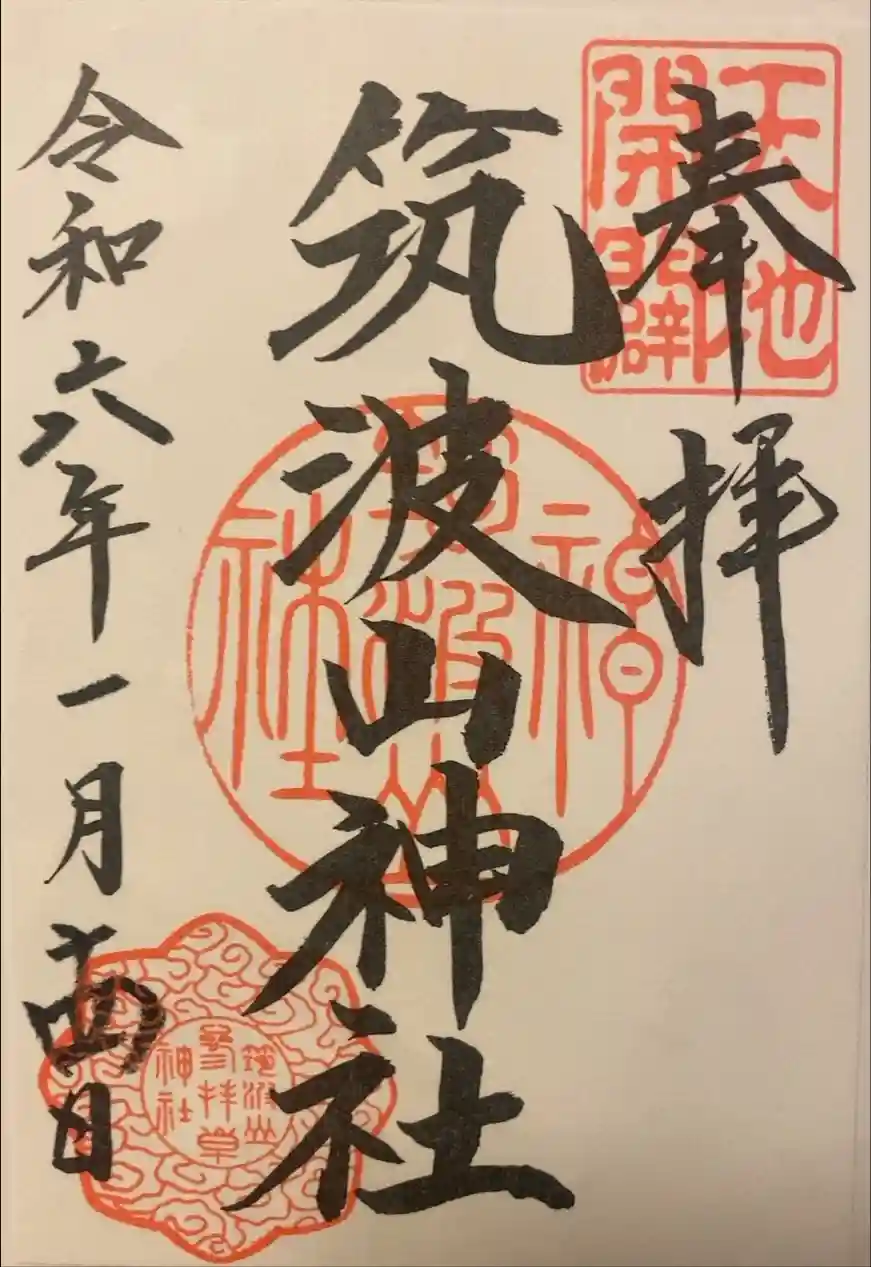 天地
開闢
奉拝
筑波山神社
筑波山神社
令和六年一月十四日
筑波山
参拝章
神社